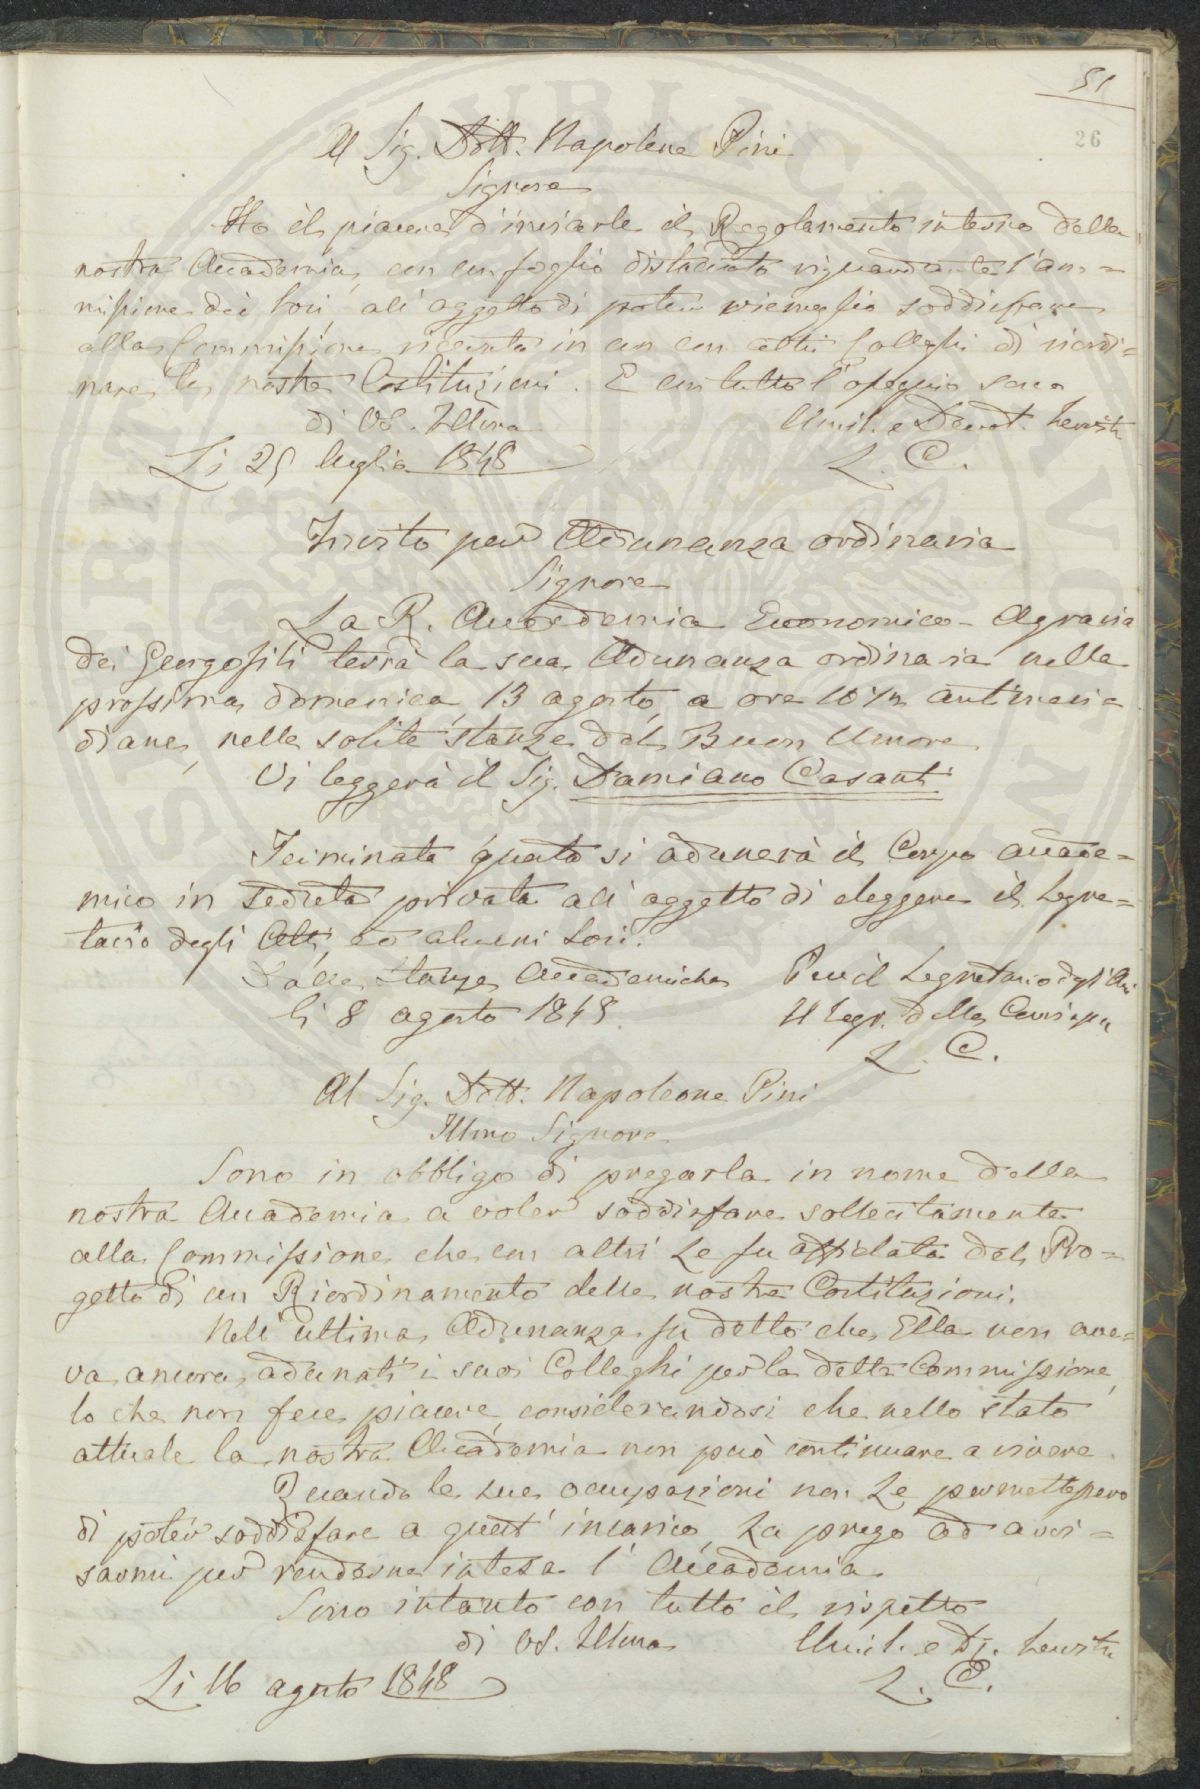 51
26
Al Sig. Dott. Napoleone Pini
Signore
Ho il piacere d'inviarle il Regolamento interno della
nostra Accademia, con un foglio distaccato riguardante l'am=
missione dei Soci, all'oggetto di poter viemeglio soddisfare
alla Commissione ricevuta in un con altri Colleghi di riordi=
nare le nostre Costituzioni. E con tutto l'ossequio sono
di VS. Illma
Umil. e Devot. Servitr
Li 25 luglio 1848
L. C.
Invito per Adunanza ordinaria
Signore
La R. Accademia Economico-Agraria
dei Georgofili terrà la sua Adunanza ordinaria nella
prossima domenica, 13 agosto, a ore 10 1/2 antimeri=
diane, nelle solite stanze del Buon Umore
Vi leggerà il Sig. Damiano Casanti
Terminata questa si adunerà il Corpo accade=
mico in seduta privata all'oggetto di eleggere il Segre=
tario degli Atti, ed alcuni Soci.
Dalle Stanze Accademiche
Per il Segretario degli Atti
li 8 agosto 1848.
Il Segr. delle Corrispze
L. C.
Al Sig. Dott. Napoleone Pini
Illmo Signore
Sono in obbligo di pregarla in nome della
nostra Accademia a voler soddisfare sollecitamente
alla Commissione che con altri Le fu affidata del Pro=
getto di un Riordinamento delle nostre Costituzioni.
Nell'ultima Adunanza fu detto che Ella non ave=
va ancora adunati i suoi Colleghi per la detta Commissione,
lo che non fece piacere, considerandosi che nello stato
attuale la nostra Accademia non può continuare a vivere.
Quando le sue occupazioni non Le permettessero
di poter soddisfare a quest'incarico, La prego ad avvi=
sarmi per renderne intesa l'Accademia.
Sono intanto con tutto il rispetto
di VS. Illma
Umil. e D. Servitr
Li 16 agosto 1848
L. C.